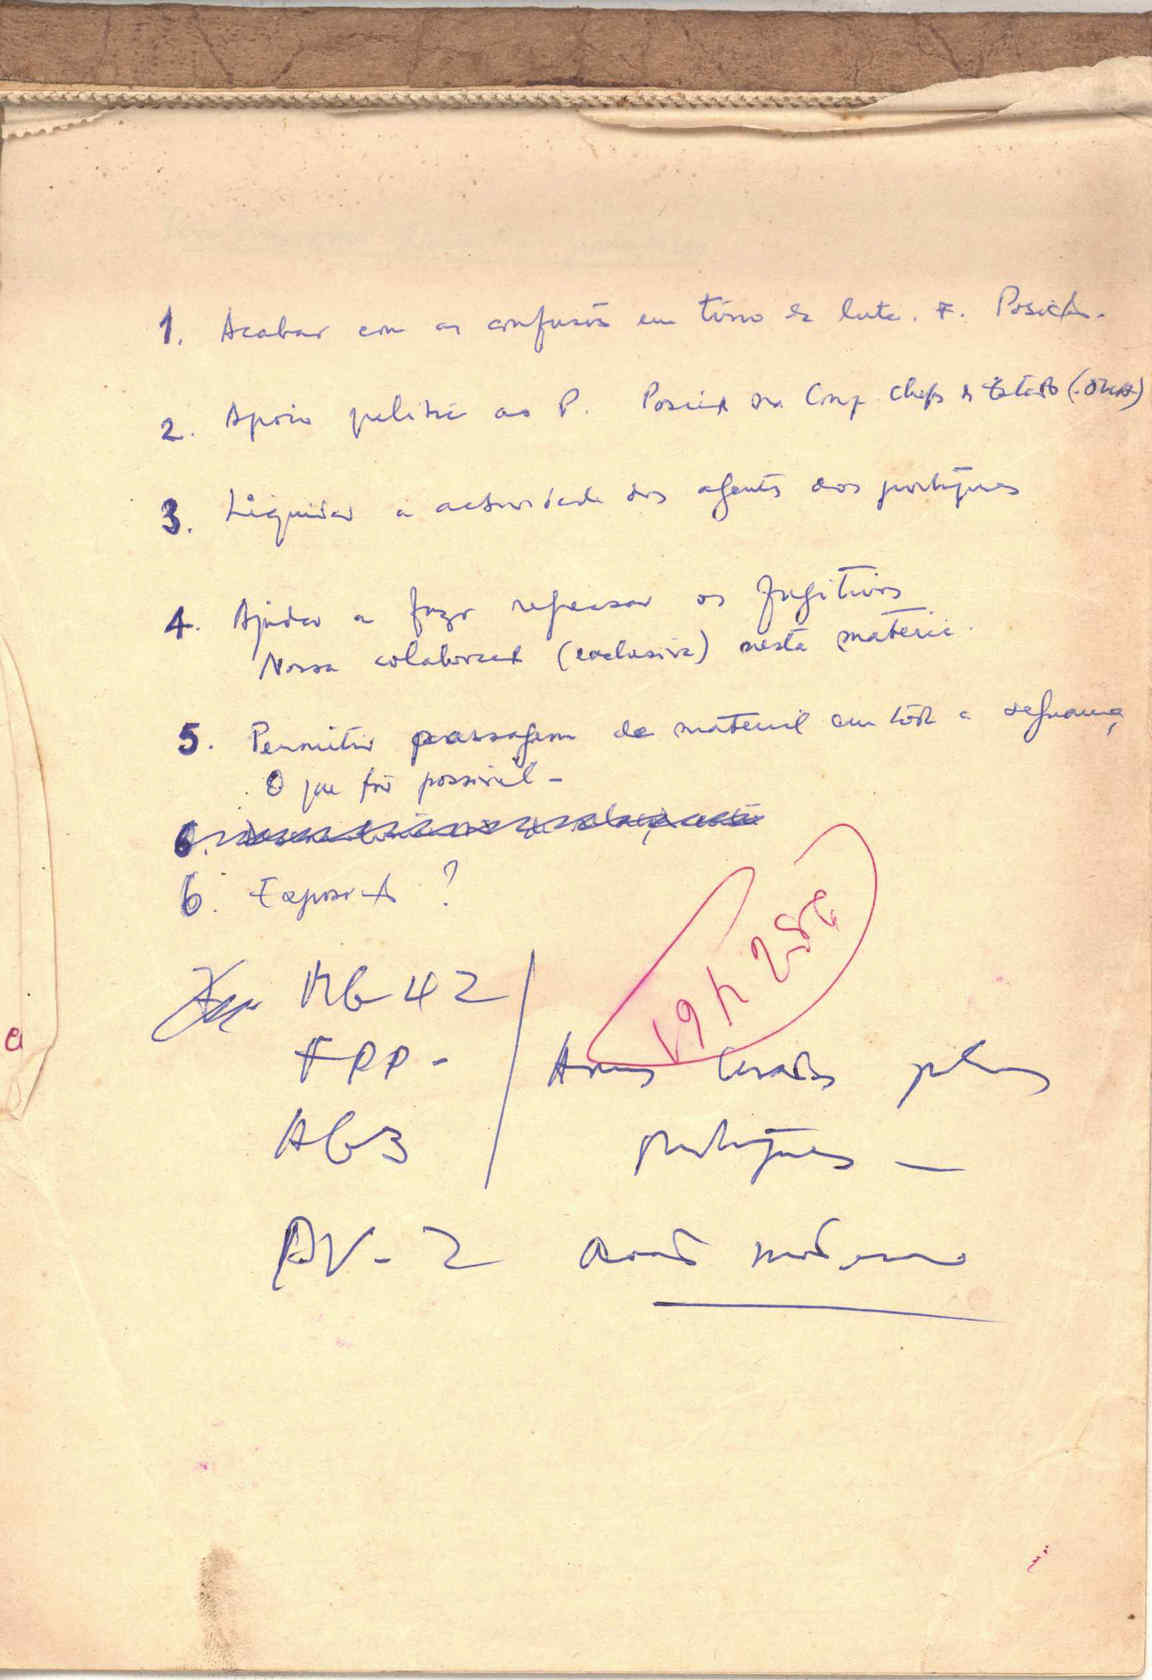 1. Acabar com as confusões em tôrno da luta. F. Posição.
2. Apoio politico ao P. Posição na Conf. Chefs de Estado (.OUA)
3. Liquidar a actividade dos agentes dos portugueses
4. Ajudar a fazer regressar os fugitivos
Nossa colaboração (exclusiva) nesta matéria.
5. Permitir passagem de material em tôda a segurança
O que fôr possivel -
6.
6. Exposição ?
MG-42
FPP-
AG3
Armas usadas pelos
portugueses —
PV-2 avião moderno